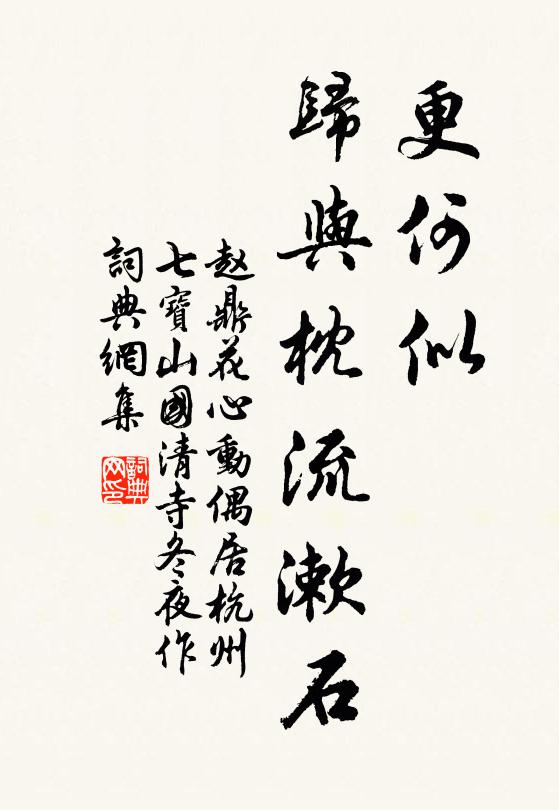 更何似
歸與枕流漱石
赵鼎花心動偶居杭州
七寶山國清寺冬夜作
詞典網集
詞典網印